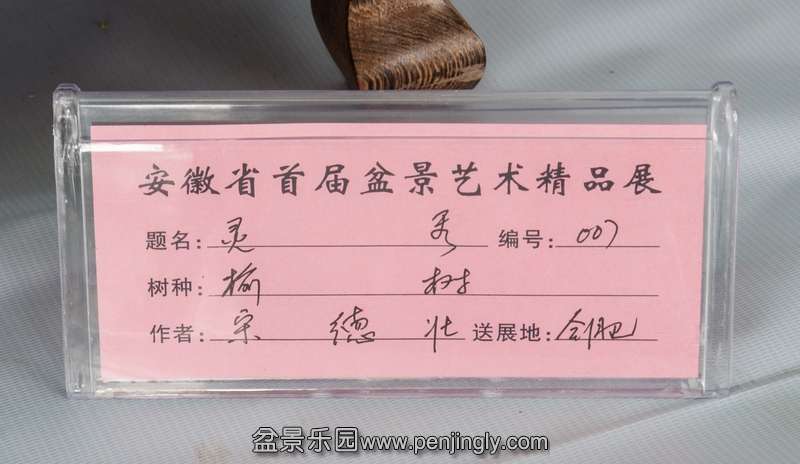 安徽省首届盆景艺术精品展
题名：灵秀 编号：007
树种：榆树
作者：宋德壮 送展地：合肥
盆景乐园www.penjingly.com